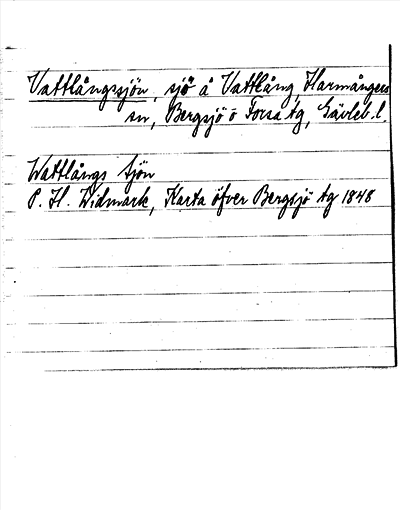 Vattlångssjön, sjö å Vattlång, Harmångers
sn, Bergsjö o Forsa tg, Gävleb. l.
Wattlångs Sjön
P. H. Widmark, Karta öfver Bergsjö tg 1848